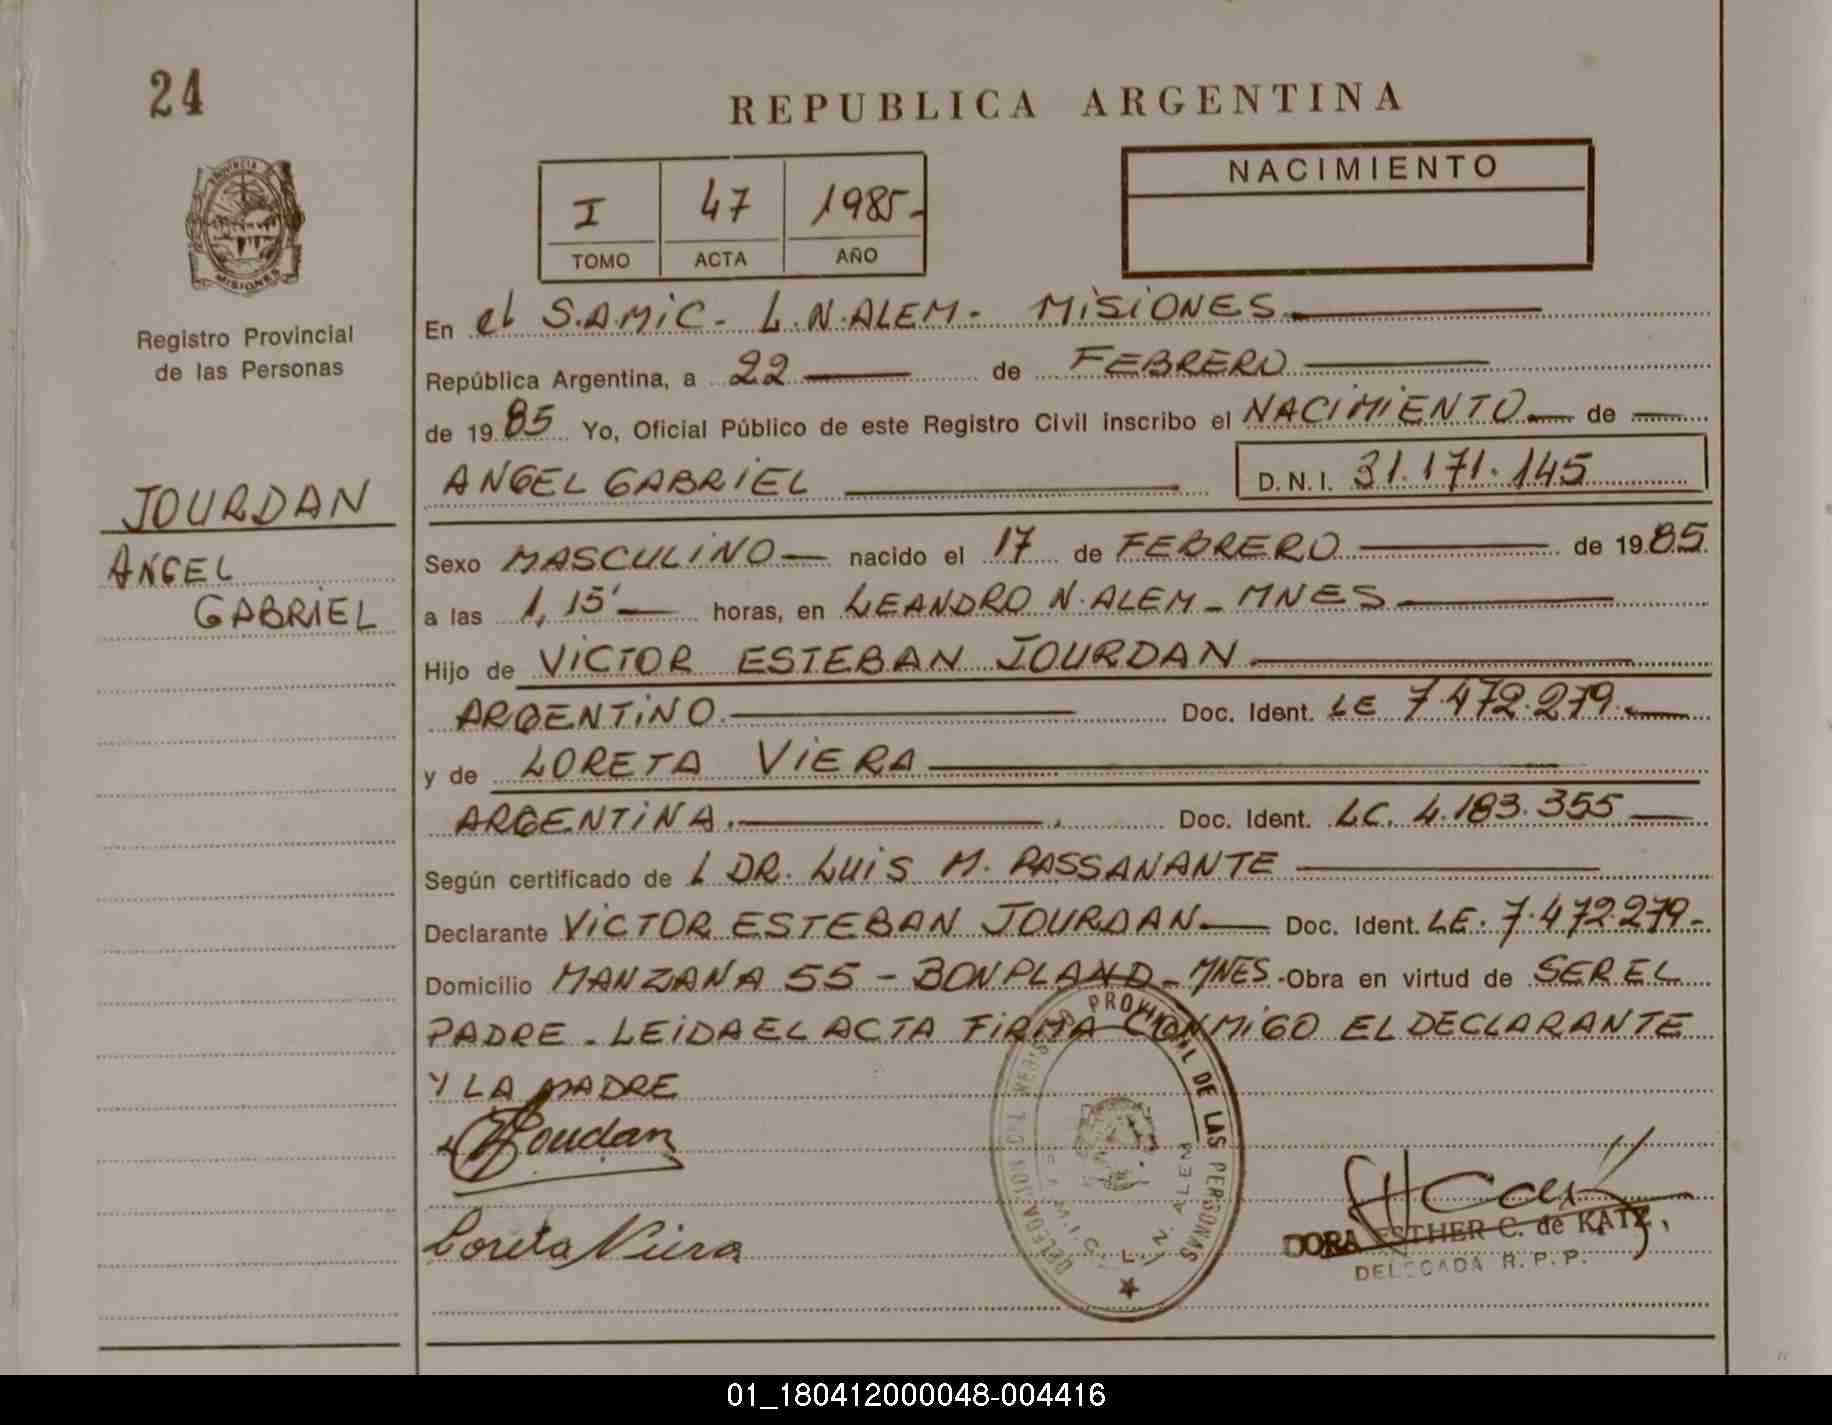 24
REPUBLICA ARGENTINA
PROVINCIA
MISIONES
Registro Provincial
de las Personas
I 47 1985-
TOMO ACTA AÑO
NACIMIENTO
En el S.A.MIC- L.N.ALEM- MISIONES
República Argentina, a 22 de FEBRERO
de 1985 Yo, Oficial Público de este Registro Civil inscribo el NACIMIENTO de
ANGEL GABRIEL D.N.I. 31.171.145
JOURDAN
ANGEL
GABRIEL
Sexo MASCULINO nacido el 17 de FEBRERO de 1985.
a las 1,15' horas, en LEANDRO N. ALEM - MNES
Hijo de VICTOR ESTEBAN JOURDAN
ARGENTINO Doc. Ident. LE 7.472.279.
y de LORETA VIERA
ARGENTINA. Doc. Ident. LC. 4.183.355
Según certificado de L DR. LUIS M. PASSANANTE
Declarante VICTOR ESTEBAN JOURDAN Doc. Ident. LE. 7.472.279-
Domicilio MANZANA 55 - BONPLAND - MNES - Obra en virtud de SER EL
PADRE - LEIDA EL ACTA FIRMA CONMIGO EL DECLARANTE
Y LA MADRE
Loreta Viera
REGISTRO PROVINCIAL DE LAS PERSONAS
DELEGACION
L. N. ALEM
DORA ESTHER C. de KATZ
DELEGADA R. P. P.
01_180412000048-004416